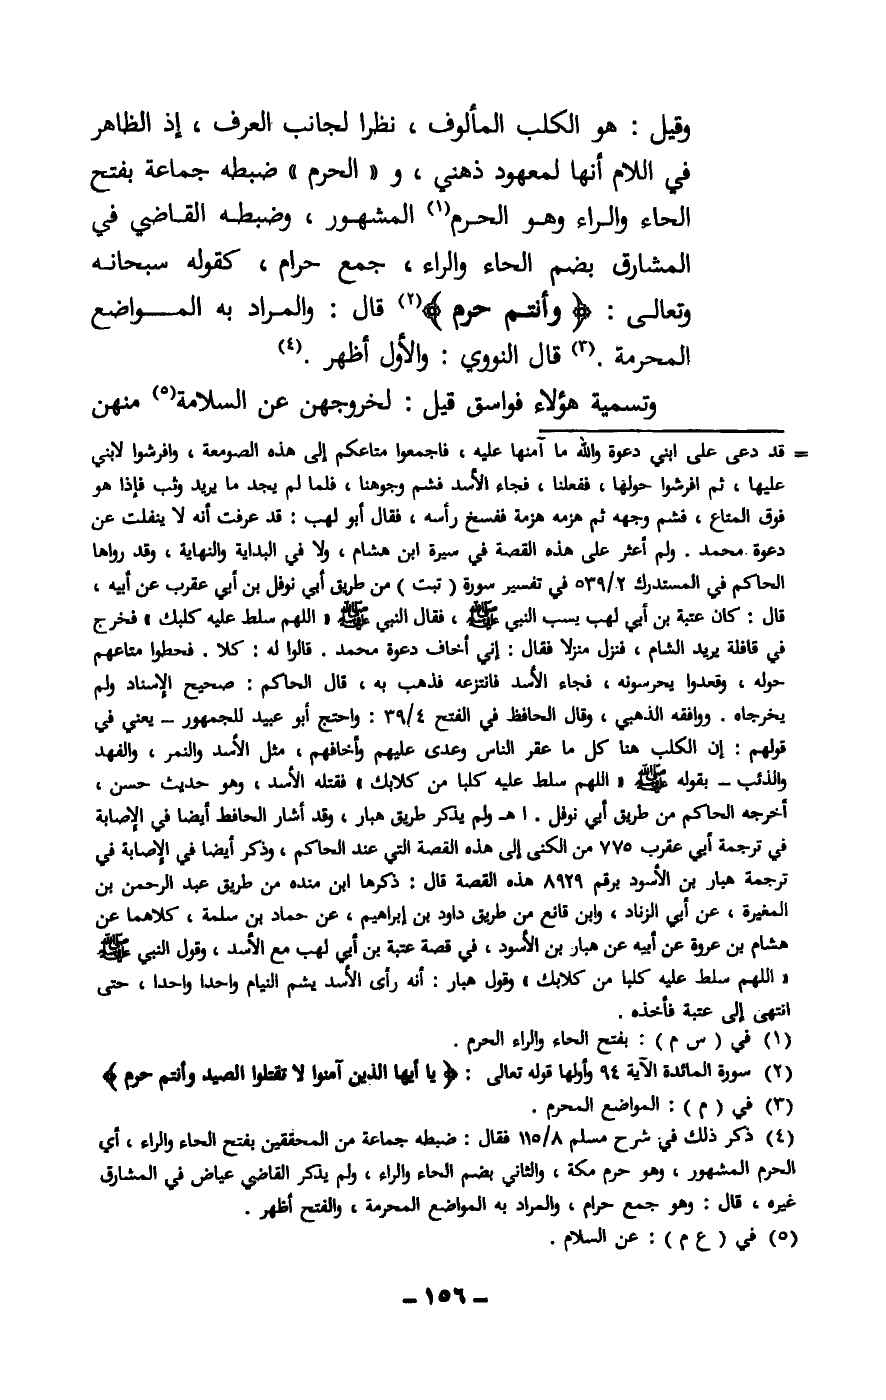 وقيل : هو الكلب المألوف ، نظرا لجانب العرف ، إذ الظاهر
في اللام أنها لمعهود ذهني ، و « الحرم » ضبطه جماعة بفتح
الحاء والراء وهو الحرم(١) المشهور ، وضبطه القاضي في
المشارق بضم الحاء والراء ، جمع حرام ، كقوله سبحانه
وتعالى : ﴿ وأنتم حرم ﴾(٢) قال : والمراد به المواضع
المحرمة .(٣) قال النووي : والأول أظهر .(٤)
وتسمية هؤلاء فواسق قيل : لخروجهن عن السلامة(٥) منهن
= قد دعى على ابني دعوة والله ما آمنها عليه ، فاجمعوا متاعكم إلى هذه الصومعة ، وافرشوا لابني
عليها ، ثم افرشوا حولها ، ففعلنا ، فجاء الأسد فشم وجوهنا ، فلما لم يجد ما يريد وثب فإذا هو
فوق المتاع ، فشم وجهه ثم هزمه هزمة ففسخ رأسه ، فقال أبو لهب : قد عرفت أنه لا ينفلت عن
دعوة محمد . ولم أعثر على هذه القصة في سيرة ابن هشام ، ولا في البداية والنهاية ، وقد رواها
الحاكم في المستدرك ٥٣٩/٢ في تفسير سورة ( تبت ) من طريق أبي نوفل بن أبي عقرب عن أبيه ،
قال : كان عتبة بن أبي لهب يسب النبي ﷺ ، فقال النبي ﷺ « اللهم سلط عليه كلبك » فخرج
في قافلة يريد الشام ، فنزل منزلا فقال : إني أخاف دعوة محمد . قالوا له : كلا . فحطوا متاعهم
حوله ، وقعدوا يحرسونه ، فجاء الأسد فانتزعه فذهب به ، قال الحاكم : صحيح الإسناد ولم
يخرجاه . ووافقه الذهبي ، وقال الحافظ في الفتح ٣٩/٤ : واحتج أبو عبيد للجمهور – يعني في
قولهم : إن الكلب هنا كل ما عقر الناس وعدى عليهم وأخافهم ، مثل الأسد والنمر ، والفهد
والذئب – بقوله ﷺ « اللهم سلط عليه كلبا من كلابك » فقتله الأسد ، وهو حديث حسن ،
أخرجه الحاكم من طريق أبي نوفل . ا هـ ولم يذكر طريق هبار ، وقد أشار الحافظ أيضا في الإصابة
في ترجمة أبي عقرب ٧٧٥ من الكنى إلى هذه القصة التي عند الحاكم ، وذكر أيضا في الإصابة في
ترجمة هبار بن الأسود برقم ٨٩٢٩ هذه القصة قال : ذكرها ابن منده من طريق عبد الرحمن بن
المغيرة ، عن أبي الزناد ، وابن قانع من طريق داود بن إبراهيم ، عن حماد بن سلمة ، كلاهما عن
هشام بن عروة عن أبيه عن هبار بن الأسود ، في قصة عتبة بن أبي لهب مع الأسد ، وقول النبي ﷺ
« اللهم سلط عليه كلبا من كلابك » وقول هبار : أنه رأى الأسد يشم النيام واحدا واحدا ، حتى
انتهى إلى عتبة فأخذه .
(١) في ( س م ) : بفتح الحاء والراء الحرم .
(٢) سورة المائدة الآية ٩٤ وأولها قوله تعالى : ﴿ يا أيها الذين آمنوا لا تقتلوا الصيد وأنتم حرم ﴾
(٣) في ( م ) : المواضع المحرم .
(٤) ذكر ذلك في شرح مسلم ١١٥/٨ فقال : ضبطه جماعة من المحققين بفتح الحاء والراء ، أي
الحرم المشهور ، وهو حرم مكة ، والثاني بضم الحاء والراء ، ولم يذكر القاضي عياض في المشارق
غيره ، قال : وهو جمع حرام ، والمراد به المواضع المحرمة ، والفتح أظهر .
(٥) في ( ع م ) : عن السلام .
– ١٥٦ –